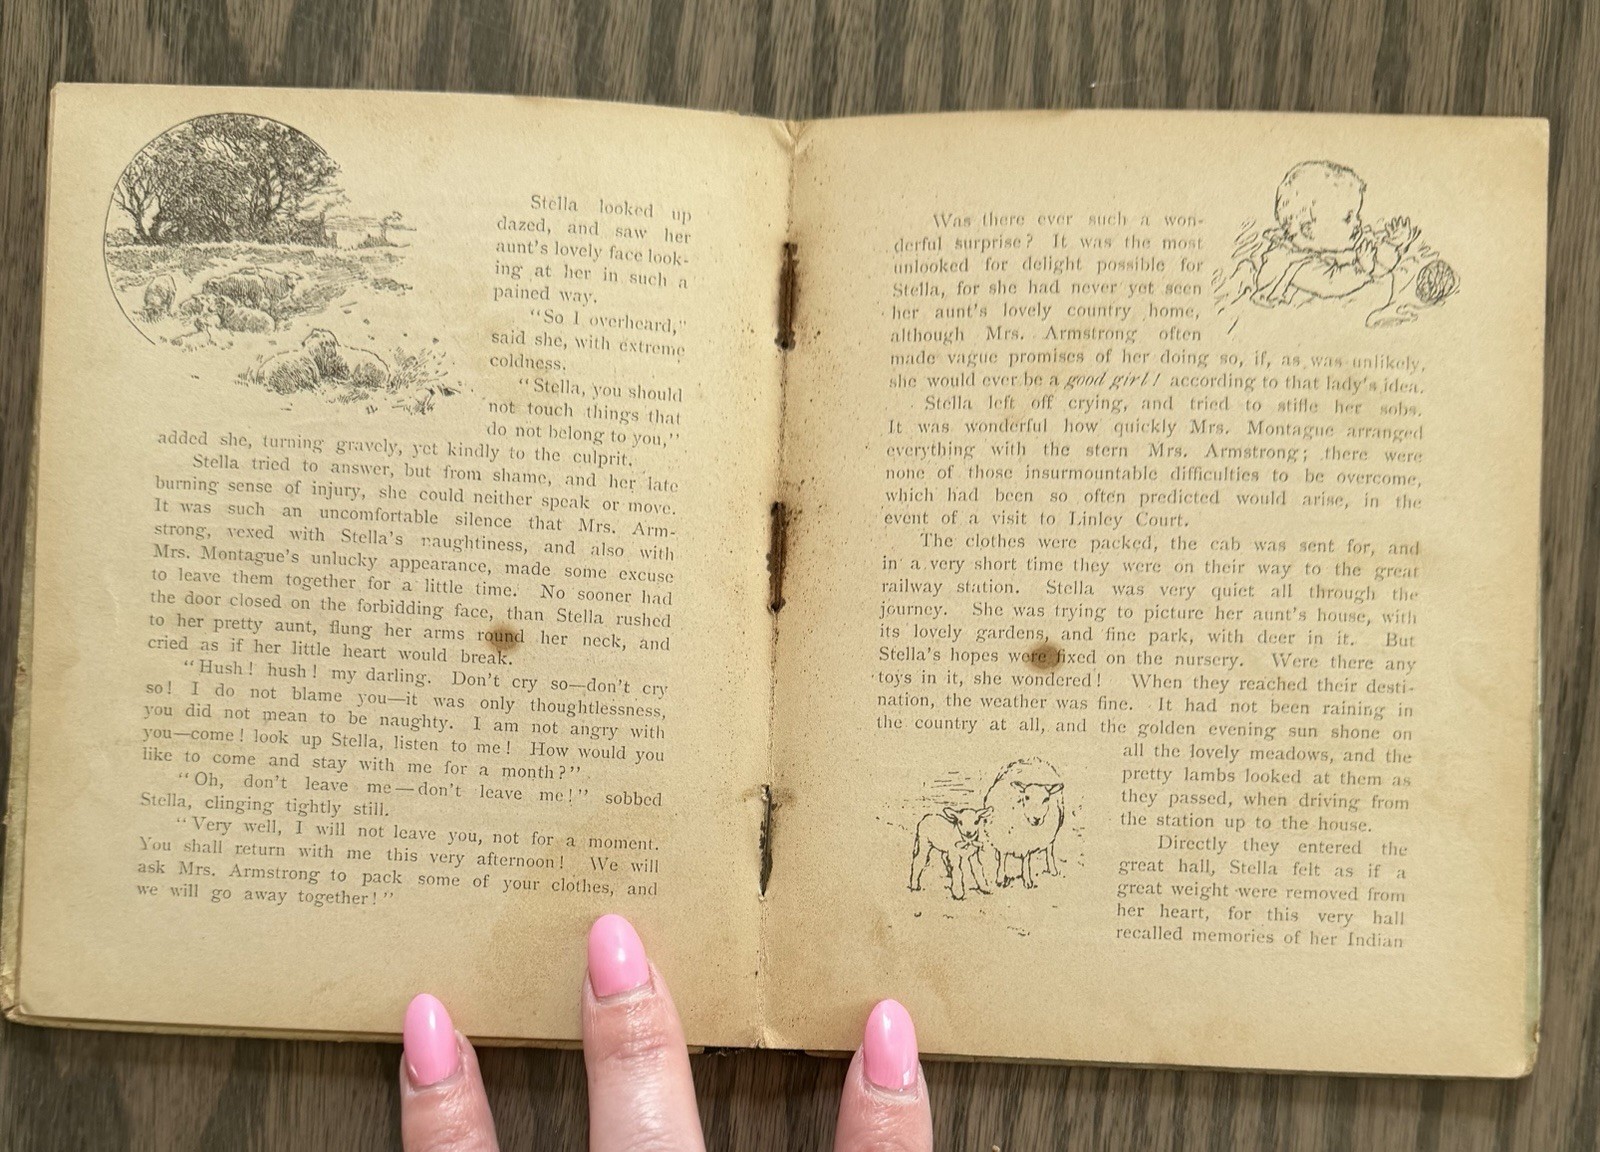 Stella looked up
dazed, and saw her
aunt's lovely face look-
ing at her in such a
pained way.
"So I overheard,"
said she, with extreme
coldness.
"Stella, you should
not touch things that
do not belong to you,"
added she, turning gravely, yet kindly to the culprit.
Stella tried to answer, but from shame, and her late
burning sense of injury, she could neither speak or move.
It was such an uncomfortable silence that Mrs. Arm-
strong, vexed with Stella's naughtiness, and also with
Mrs. Montague's unlucky appearance, made some excuse
to leave them together for a little time. No sooner had
the door closed on the forbidding face, than Stella rushed
to her pretty aunt, flung her arms round her neck, and
cried as if her little heart would break.
"Hush! hush! my darling. Don't cry so—don't cry
so! I do not blame you—it was only thoughtlessness,
you did not mean to be naughty. I am not angry with
you—come! look up Stella, listen to me! How would you
like to come and stay with me for a month?"
"Oh, don't leave me—don't leave me!" sobbed
Stella, clinging tightly still.
"Very well, I will not leave you, not for a moment.
You shall return with me this very afternoon! We will
ask Mrs. Armstrong to pack some of your clothes, and
we will go away together!"
Was there ever such a won-
derful surprise? It was the most
unlooked for delight possible for
Stella, for she had never yet seen
her aunt's lovely country home,
although Mrs. Armstrong often
made vague promises of her doing so, if, as was unlikely,
she would ever be a good girl! according to that lady's idea.
Stella left off crying, and tried to stifle her sobs.
It was wonderful how quickly Mrs. Montague arranged
everything with the stern Mrs. Armstrong; there were
none of those insurmountable difficulties to be overcome,
which had been so often predicted would arise, in the
event of a visit to Linley Court.
The clothes were packed, the cab was sent for, and
in a very short time they were on their way to the great
railway station. Stella was very quiet all through the
journey. She was trying to picture her aunt's house, with
its lovely gardens, and fine park, with deer in it. But
Stella's hopes were fixed on the nursery. Were there any
toys in it, she wondered! When they reached their desti-
nation, the weather was fine. It had not been raining in
the country at all, and the golden evening sun shone on
all the lovely meadows, and the
pretty lambs looked at them as
they passed, when driving from
the station up to the house.
Directly they entered the
great hall, Stella felt as if a
great weight were removed from
her heart, for this very hall
recalled memories of her Indian